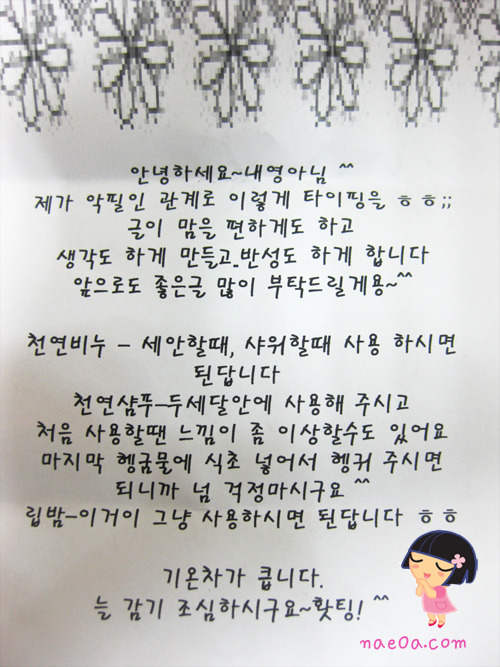 안녕하세요~내영아님 ^^
제가 악필인 관계로 이렇게 타이핑을 ㅎㅎ;;
글이 맘을 편하게도 하고
생각도 하게 만들고..반성도 하게 합니다
앞으로도 좋은글 많이 부탁드릴게용~^^
천연비누 - 세안할때, 샤워할때 사용 하시면
된답니다
천연샴푸-두세달안에 사용해 주시고
처음 사용할땐 느낌이 좀 이상할수도 있어요
마지막 헹굼물에 식초 넣어서 헹궈 주시면
되니까 넘 걱정마시구요 ^^
립밤-이거이 그냥 사용하시면 된답니다 ㅎㅎ
기온차가 큽니다.
늘 감기 조심하시구요~홧팅! ^^
nae0a.com